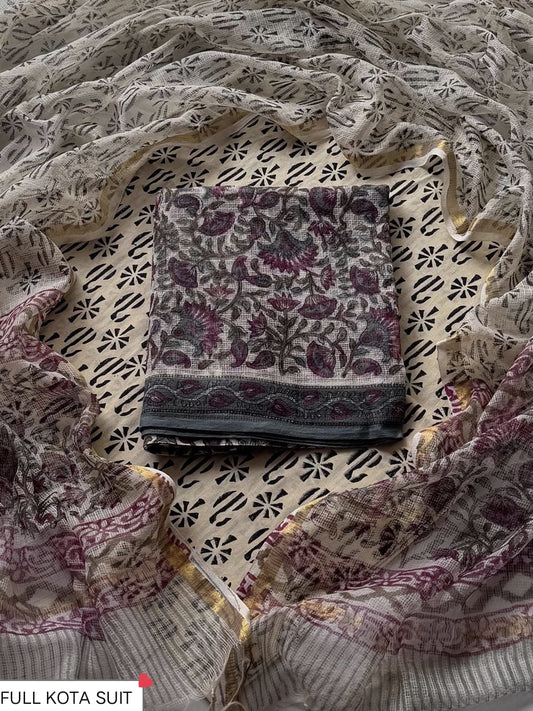 FULL KOTA SUIT